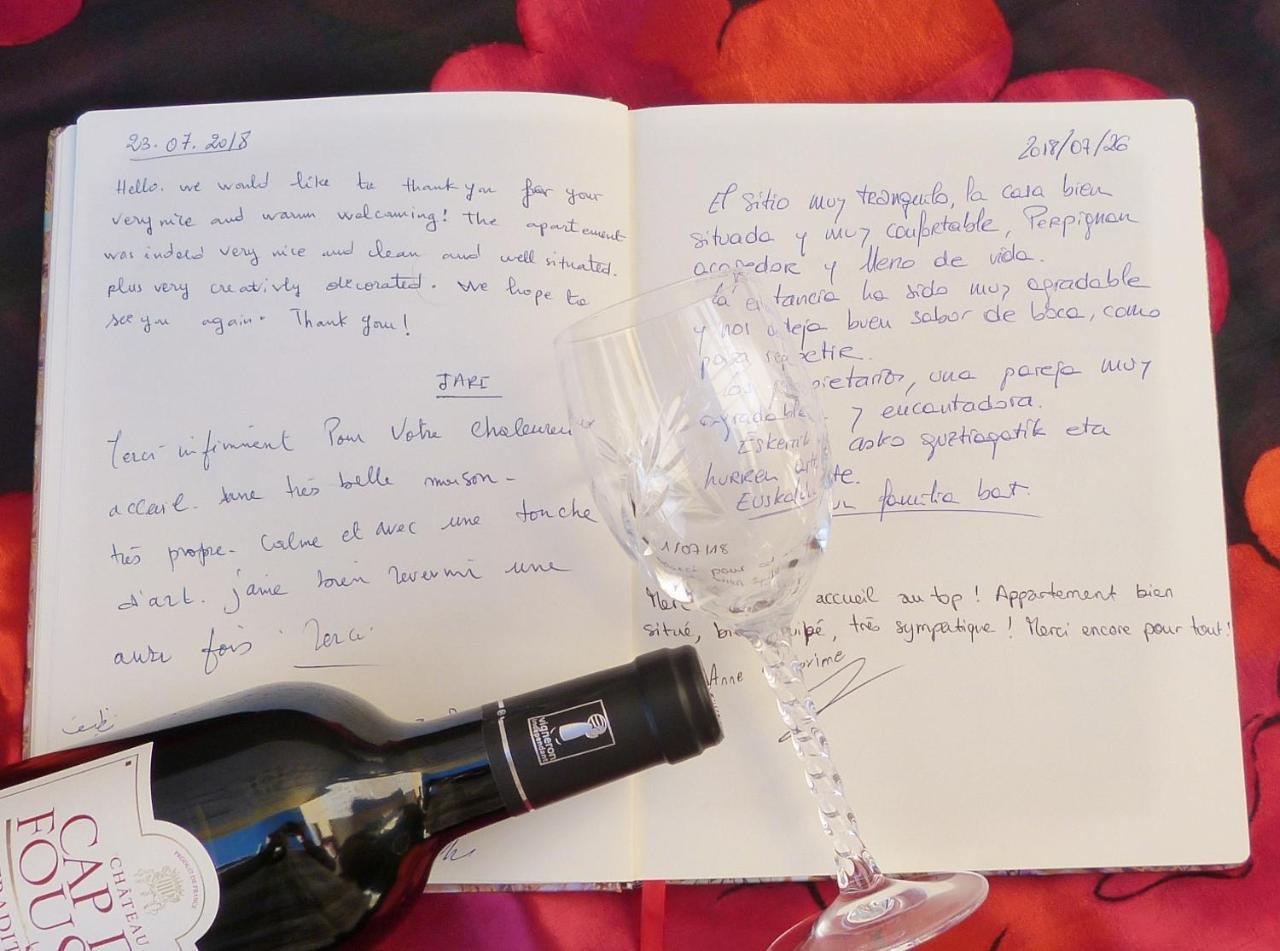 23.07.2018
Hello. we would like to thank you for your
very nice and warm welcoming! The apartement
was indeed very nice and clean and well situated.
plus very creativly decorated. We hope to
see you again. Thank you!
JARI
Merci infiniment Pour Votre
accueil. une très belle maison.
très propre. Calme et avec une touche
d'art. j'aime bien revenir une
fois Merci
2018/07/26
El sitio muy tranquilo, la casa bien
situada y muy confortable, Perpignan
acogedor y lleno de vida.
la estancia ha sido muy agradable
y nos deja buen sabor de boca, como
para repetir.
los propietarios, una pareja muy
agradable y encantadora.
Eskerrik asko guztiagatik eta
hurren arte.
Euskal familia bat.
1/07/18
pour
Merci accueil au top ! Appartement bien
situé, bien équipé, très sympatique ! Merci encore pour tout!
Anne
vigneron
indépendant
CHÂTEAU
CAP
FOUS
TRADIT